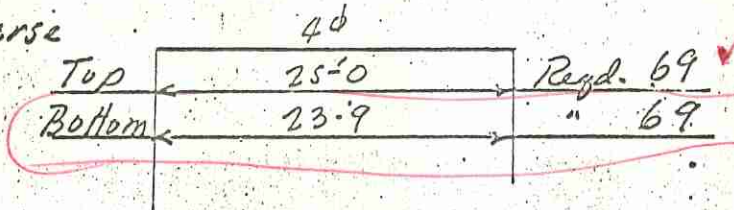 4φ
Top 25-0 Reqd. 69
Bottom 23-9 " 69